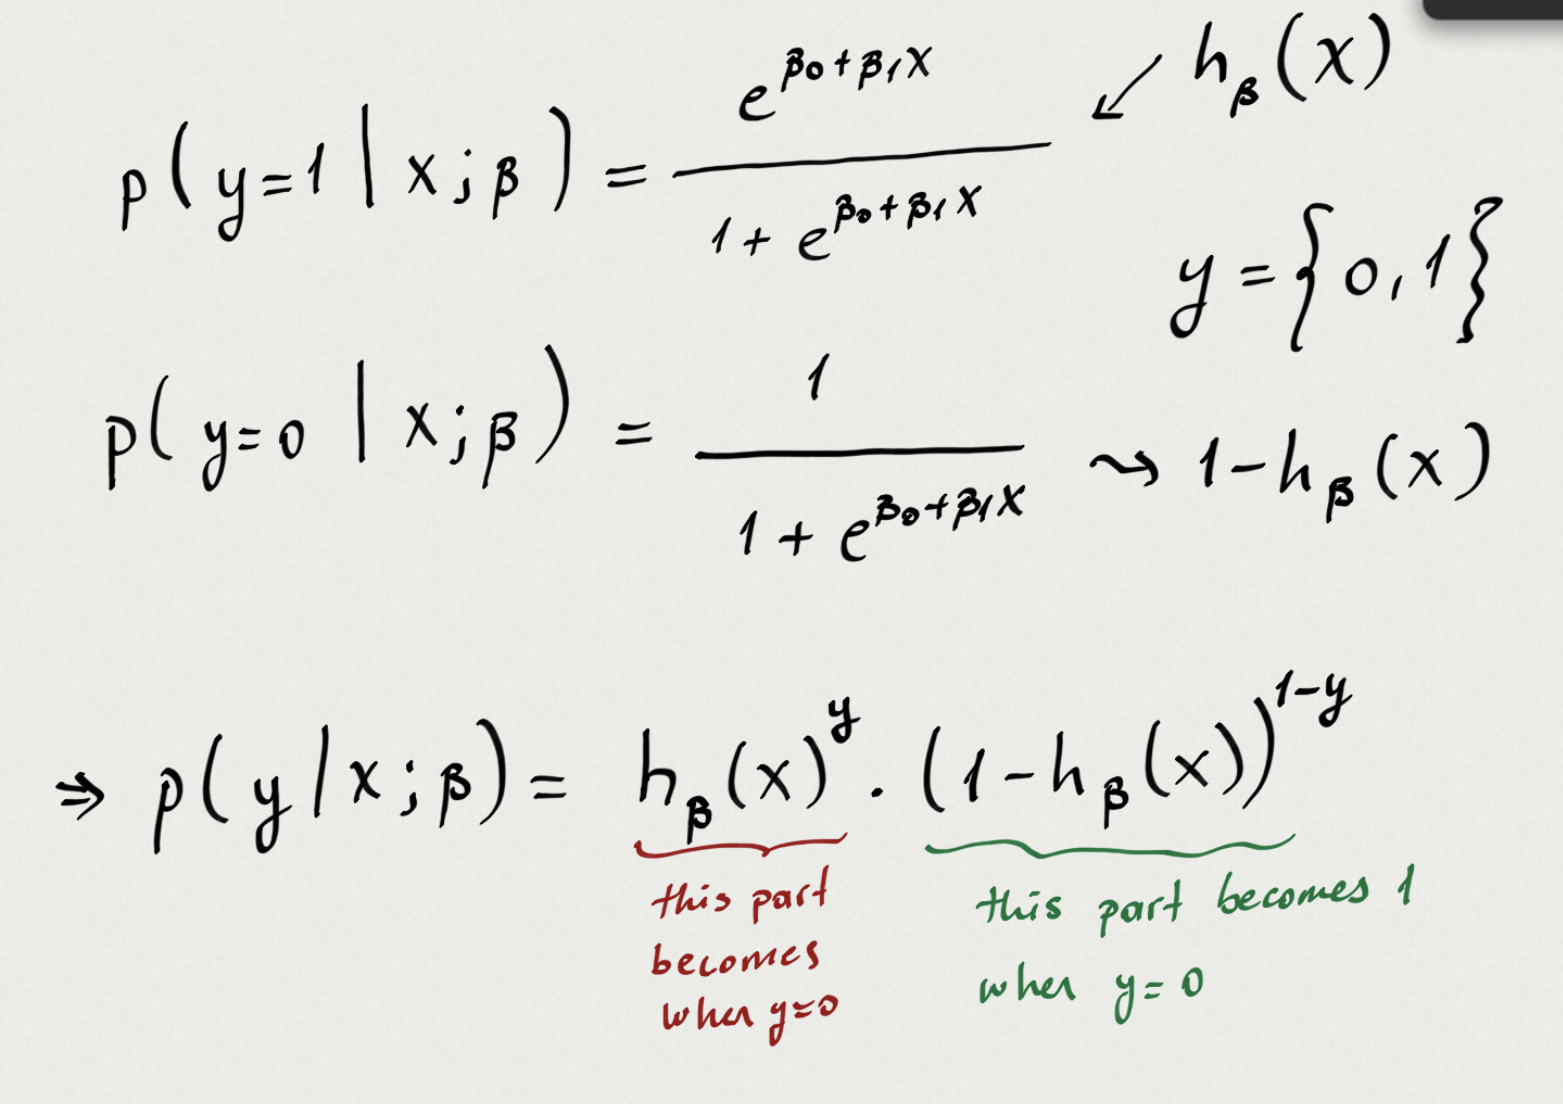 p(y=1 | x;β) = e^{β₀+β₁x} / (1 + e^{β₀+β₁x}) ↙ h_β(x)
y = {0,1}
p(y=0 | x;β) = 1 / (1 + e^{β₀+β₁x}) ⇝ 1-h_β(x)
⇒ p(y|x;β) = h_β(x)^y · (1-h_β(x))^{1-y}
this part
becomes
when y=0
this part becomes 1
when y=0